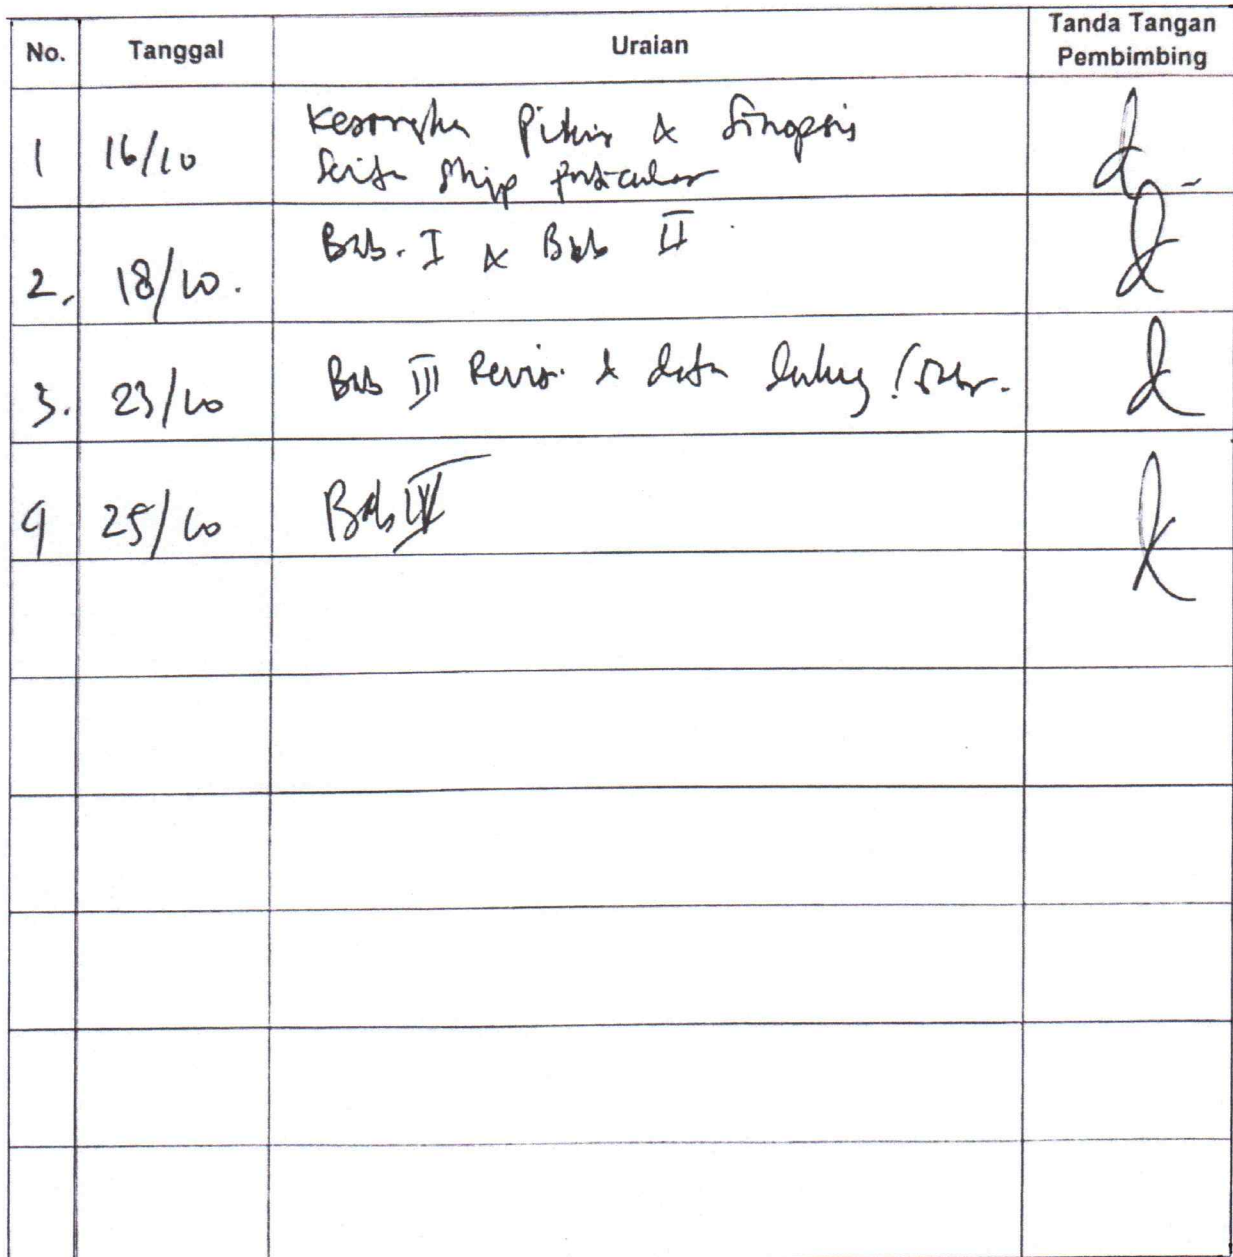 No. Tanggal Uraian Tanda Tangan
Pembimbing
1 16/10 Kerangka Pikir & Sinopsis
Serta Ship particular
2. 18/10. Bab. I & Bab II
3. 23/10 Bab III Revisi. & data
4 25/10 Bab IV